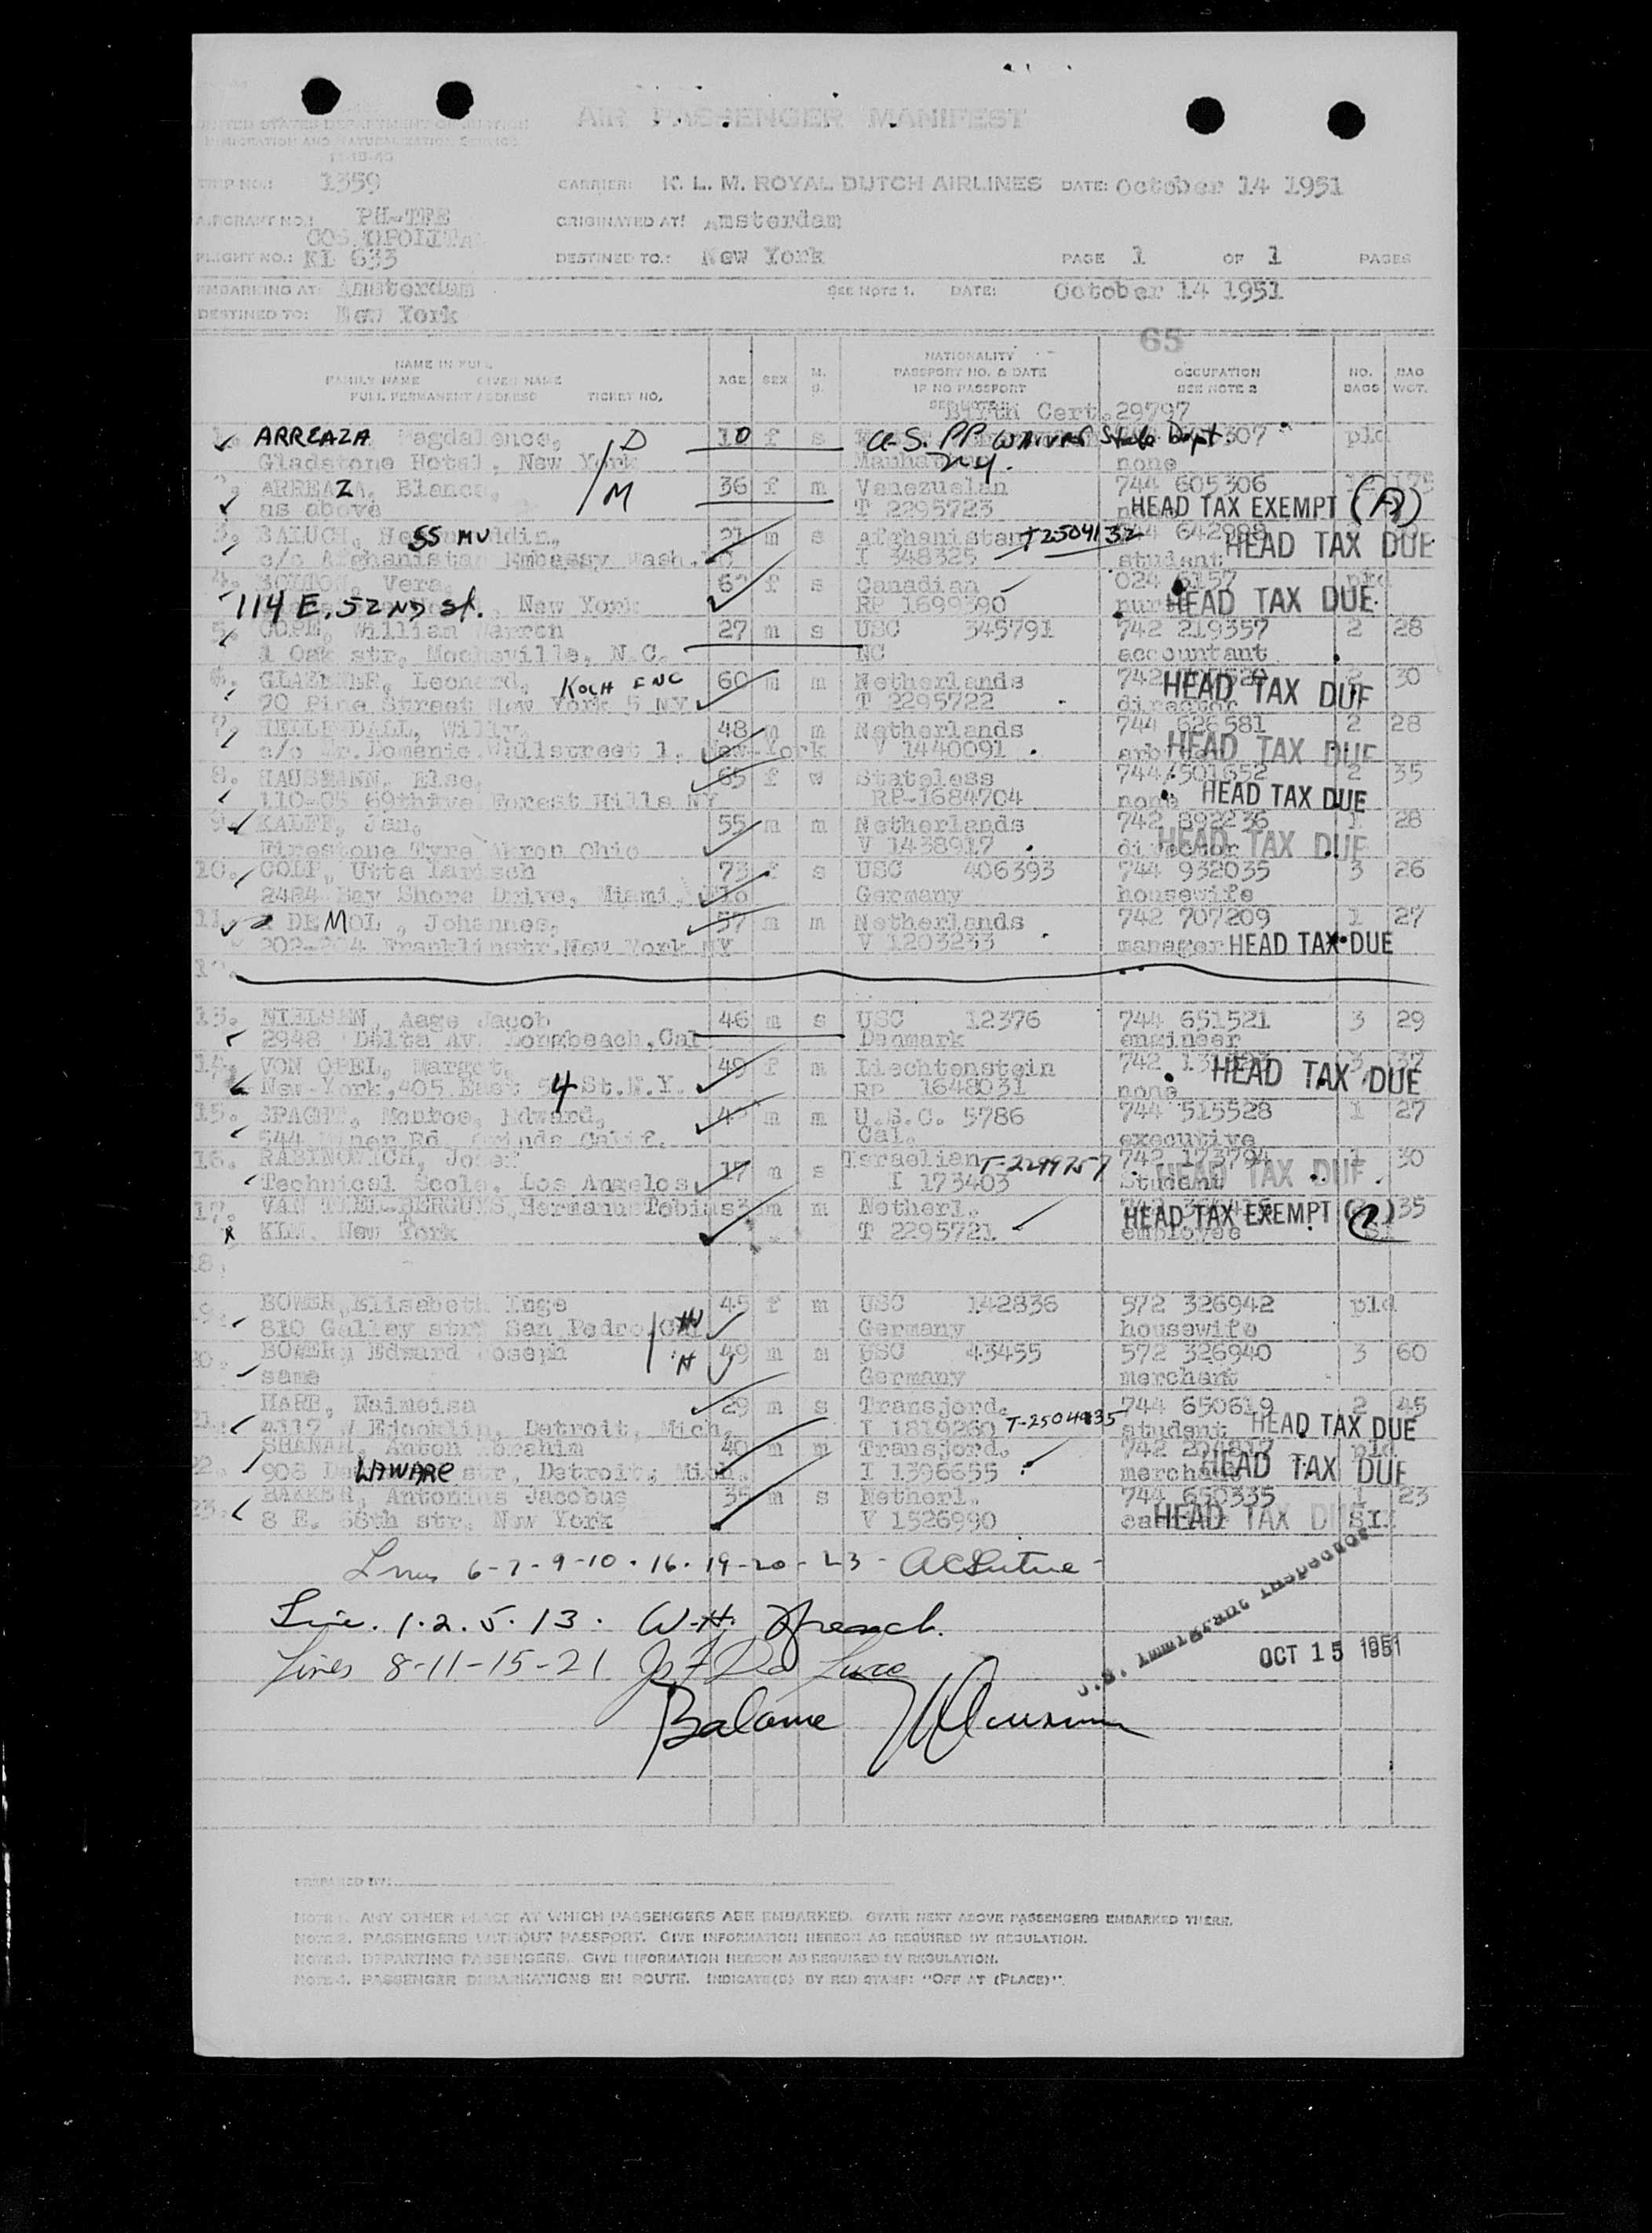 AIR PASSENGER MANIFEST
UNITED STATES DEPARTMENT OF JUSTICE
IMMIGRATION AND NATURALIZATION SERVICE
TRIP NO.: 1359 CARRIER: K. L. M. ROYAL DUTCH AIRLINES DATE: October 14 1951
AIRCRAFT NO.: PH-TFE ORIGINATED AT: Amsterdam
FLIGHT NO.: KL 633 DESTINED TO.: New York PAGE 1 OF 1 PAGES
EMBARKING AT: Amsterdam SEE NOTE 1. DATE: October 14 1951
DESTINED TO: New York
65
NAME IN FULL
FAMILY NAME GIVEN NAME
FULL PERMANENT ADDRESS TICKET NO.
AGE SEX M. S.
NATIONALITY
PASSPORT NO. & DATE
IF NO PASSPORT
OCCUPATION
SEE NOTE 2
NO. BAGS
BAG WGT.
Birth Cert. 29797
1. ARREAZA D 10 f s U.S. PP Waiver State Dept pld
Gladstone Hotel, New York Manhattan N.Y. none
2. ARREAZA, Blanca, M 36 f m Venezuelan 744 605306
as above T 2295723 HEAD TAX EXEMPT
3. BALUCH, SS MU m s Afghanistan T2504132
c/o Afghanistan Embassy Wash. I 348325 student HEAD TAX DUE
4. Vera, f s Canadian 024 6157 pld
114 E. 52ND St. New York RP 1699390 HEAD TAX DUE
5. COPE, William Warren 27 m s USC 345791 742 219357 2 28
1 Oak str, Mocksville, N.C. NC accountant
6. Leonard, KOCH ENC 60 m m Netherlands 742 30
70 Pine Street New York 5 NY T 2295722 director HEAD TAX DUE
7. Willy, 48 m m Netherlands 744 626581 2 28
c/o Mr.Domenic, Wallstreet 1, New-York V 1440091 HEAD TAX DUE
8. HAUSMANN, Else, 65 f w Stateless 744/501652 2 35
110-05 69thAve Forest Hills NY RP-1684704 none HEAD TAX DUE
9. KALFF, Jan, 55 m m Netherlands 742 892236 1 28
Firestone Tyre Akron Ohio V 1438917 director HEAD TAX DUE
10. COLP, Utta Larisch 73 f s USC 406393 744 932035 3 26
2484 Bay Shore Drive, Miami, Flo Germany housewife
11. DE MOL, Johannes, 57 m m Netherlands 742 707209 1 27
202-204 Franklinstr.New York NY V 1203233 manager HEAD TAX DUE
12.
13. NIELSEN, Aage Jacob 46 m s USC 12376 744 651521 3 29
2948 Delta Av. Longbeach,Cal Denmark engineer
14. VON OPEL, Margot, 49 f m Liechtenstein 742 3 37
New-York,405 East 54 St.N.Y. RP 1648031 none HEAD TAX DUE
15. SPAGHT, Monroe, Edward, m m U.S.C. 5786 744 515528 1 27
544 Miner Rd, Orinda Calif. Cal. executive
16. RABINOVICH, Josef 17 m s Israelian T-2299757 742 173794 1 30
Technical Scole, Los Angelos I 173403 Student HEAD TAX DUE
17. Hermanus Tobias m m Netherl. 35
KLM, New York T 2295721 employee HEAD TAX EXEMPT (2)
18.
19. BOWER,Elisabeth Inge W 45 f m USC 142836 572 326942 pld
810 Galley str, San Pedro,Cal Germany housewife
20. BOWER, Edward Joseph H 49 m m USC 43455 572 326940 3 60
same Germany merchant
21. HARB, Naimeisa 29 m s Transjord. 744 650619 2 45
Detroit, Mich. I 1819260 T-2504835 student HEAD TAX DUE
22. SHANAH, Anton Abrahim 40 m m Transjord. 742 pld
908 DeLAWARE str, Detroit, Mich. I 1396655 merchant HEAD TAX DUE
23. BAKKER, Antonius Jacobus 35 m s Netherl. 744 650335 1 23
8 E. 68th str, New York V 1526990 HEAD TAX DUE
Lines 6-7-9-10-16-19-20-23-
Line. 1.2.5.13. W.H. French.
Lines 8-11-15-21
Balance
U.S. Immigrant Inspector
OCT 15 1951
PREPARED BY:
NOTE 1. ANY OTHER PLACE AT WHICH PASSENGERS ARE EMBARKED. STATE NEXT ABOVE PASSENGERS EMBARKED THERE.
NOTE 2. PASSENGERS WITHOUT PASSPORT. GIVE INFORMATION HEREON AS REQUIRED BY REGULATION.
NOTE 3. DEPARTING PASSENGERS. GIVE INFORMATION HEREON AS REQUIRED BY REGULATION.
NOTE 4. PASSENGER DEBARKATIONS EN ROUTE. INDICATE(D) BY RED STAMP: "OFF AT (PLACE)".